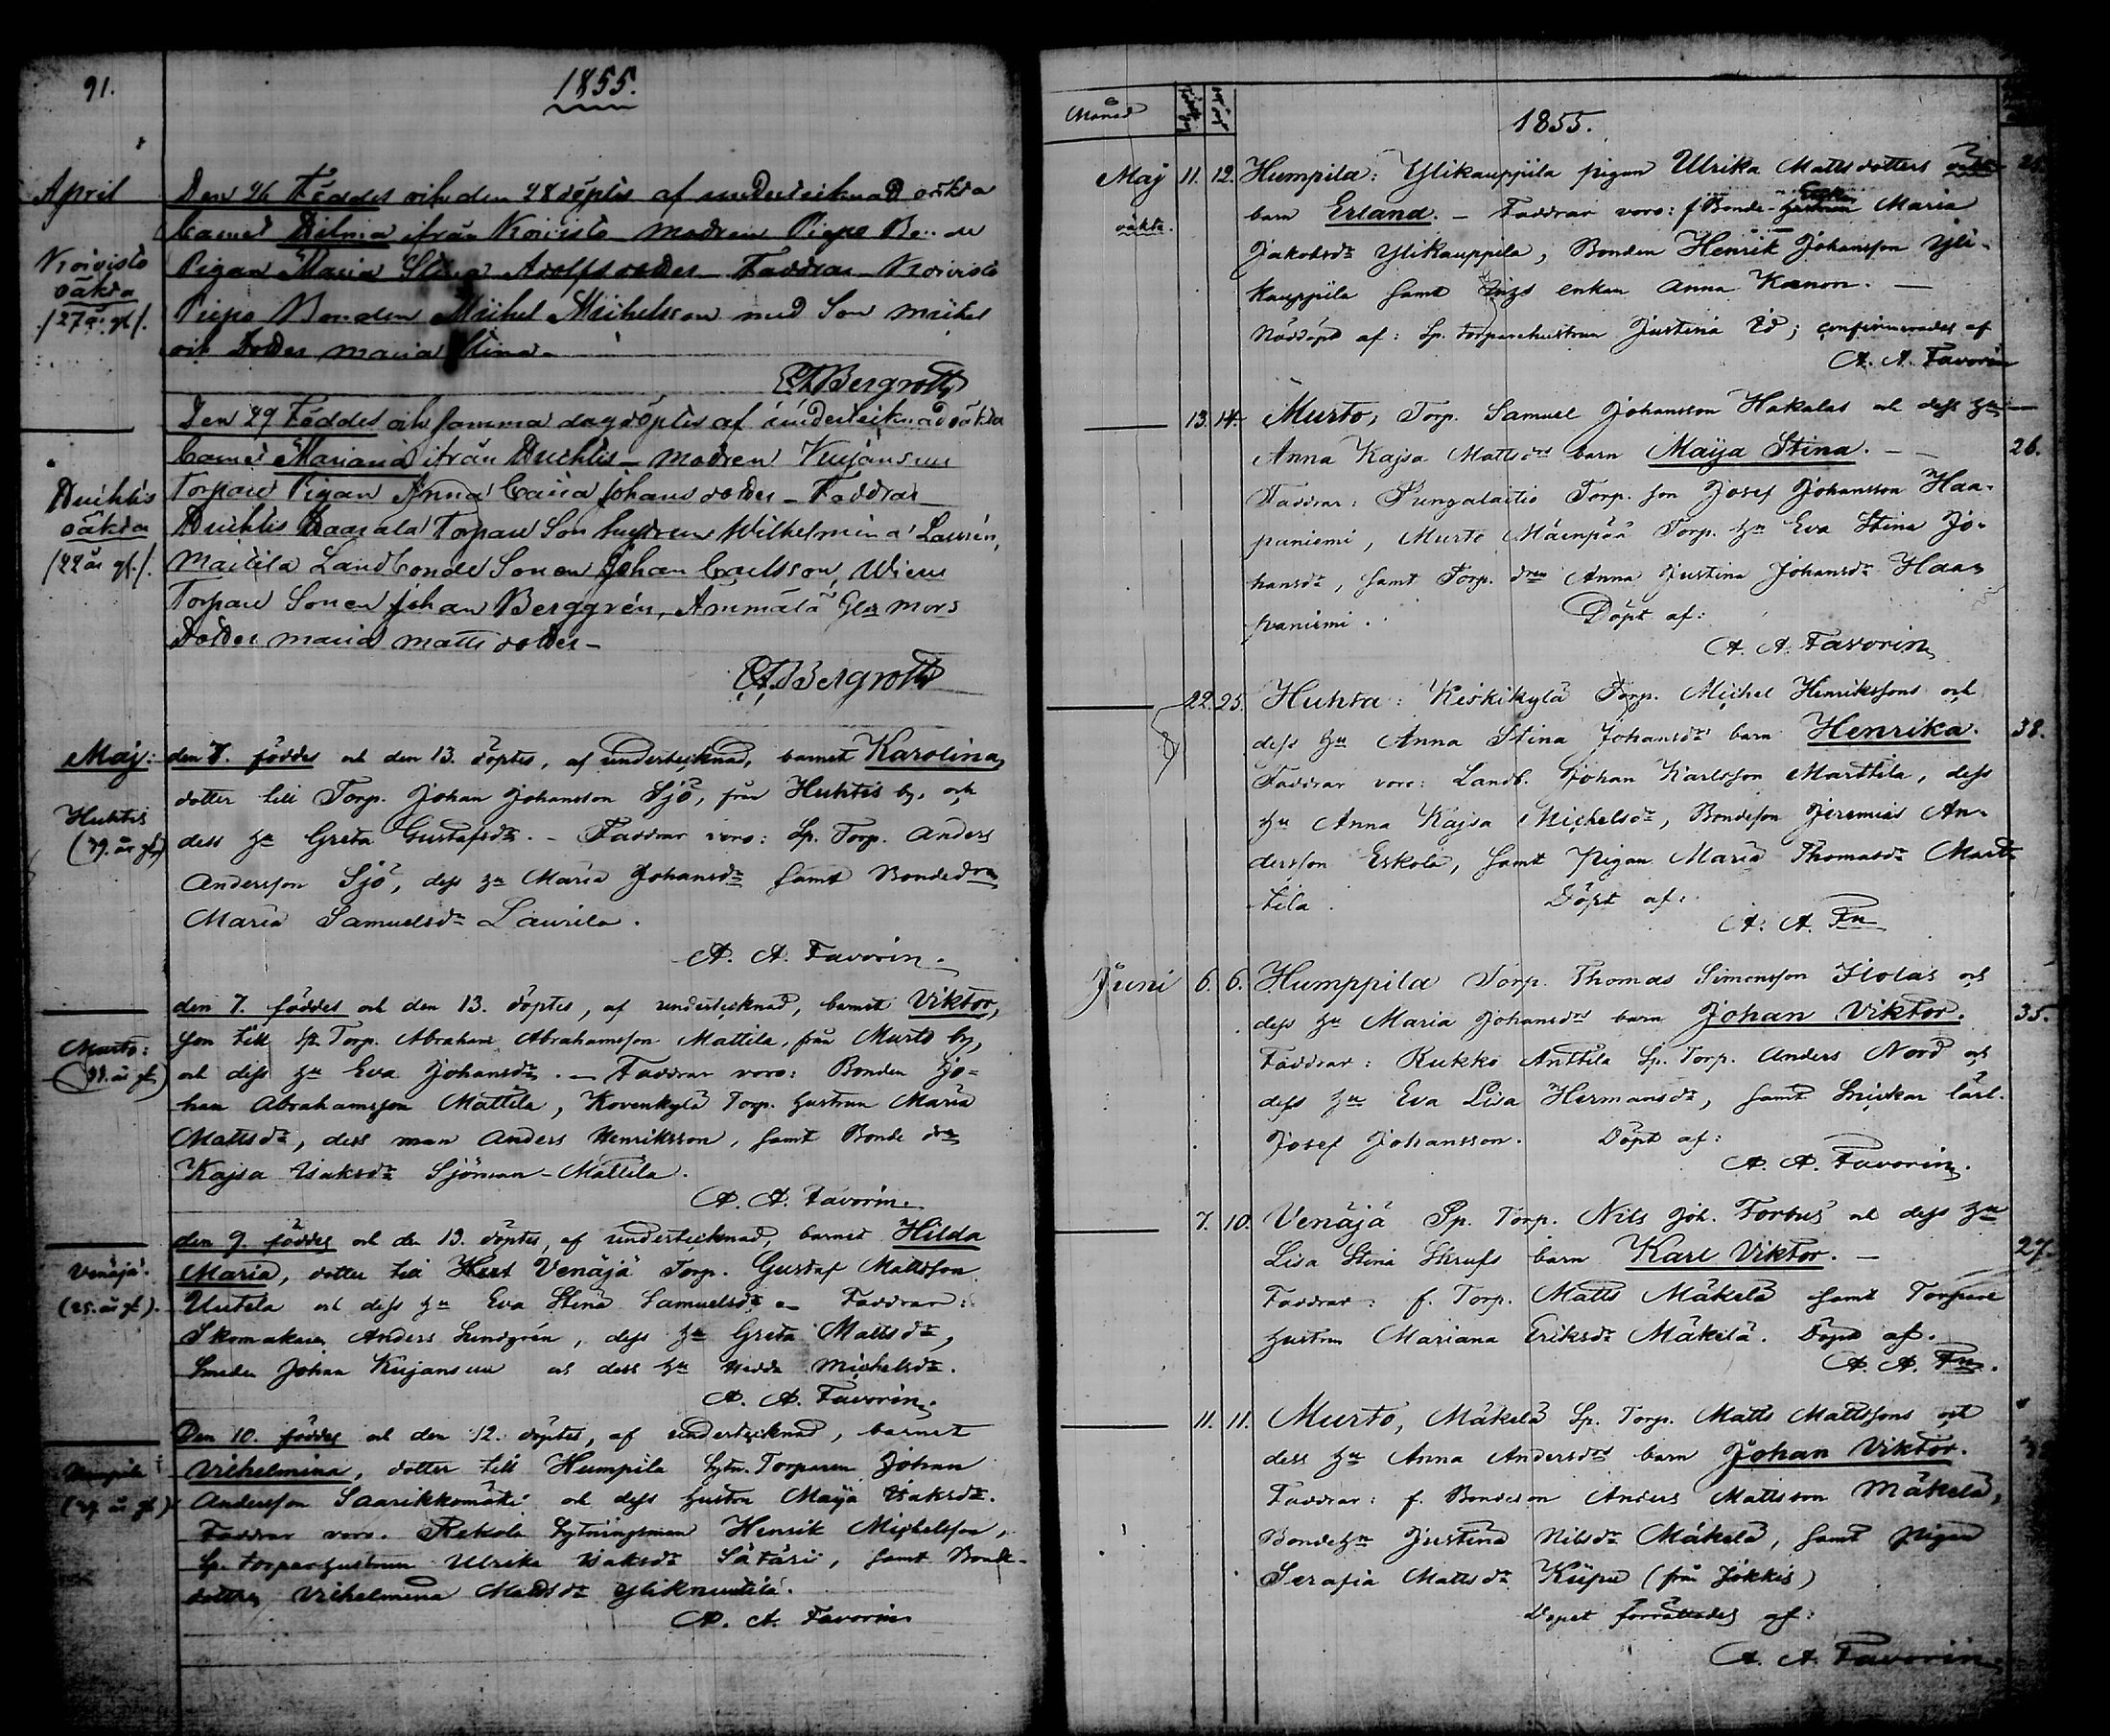 91.
1855.
April
Den 26 Föddes och den 28 döptes af undertecknad oäkta
barnet Dilmia ifrån Koivisto modren Piepo
Koivisto
oäkta
/27 år gl/.
Pigan Maria Stina Adolfs dotter Faddrar Koivisto
Piepo Bonden Michel Michelsson med Son Michel
och Dotter Maria Stina
Bergroth
Den 29 Föddes och samma dag döptes af undertecknad oäkta
barnet Mariana ifrån Duchtis modren Kujansuu
Duchtis
oäkta
/22 år gl./.
Torpare Pigan Anna Caisa Johans dotter – Faddrar
Duchtis Torpare Son hustrun Wilhelmina Laurén,
Landbonde Sonen Johan Carlsson,
Torpare Sonen Johan Berggrén,
Dotter Maria Matts dotter –
Bergroth
Maj:
den 7. föddes och den 13. döptes, af undertecknad, barnet Karolina,
Huhtis
(39. år gl)
dotter till Torp. Johan Johansson Sjö, från Huhtis by, och
dess hu Greta Gustafsdr. – Faddrar voro: Sp. Torp. Anders
Andersson Sjö, dess hu Maria Johansdr samt Bondedrn
Maria Samuelsdr Laurila.
A. A. Favorin.
den 7. föddes och den 13. döptes, af undertecknad, barnet Viktor,
Murto:
son till Sp. Torp. Abraham Abrahamsson Mattila, från Murto by,
och dess hu Eva Johansdr. – Faddrar voro: Bonden Jo=
han Abrahamsson Mattila, Kovenkylä Torp. hustrun Maria
Mattsdr, dess man Anders Henriksson, samt Bonde drn
Kajsa Isaksdr Sjöman-Mattila.
A. A. Favorin.
den 9. föddes och den 13. döptes, af undertecknad, barnet Hilda
Venäjä:
(25. år gl).
Maria, dotter till Venäjä Torp. Gustaf Mattsson
Uutela och dess hu Eva Stina Samuelsdr – Faddrar:
Skomakaren Anders Lundgrén, dess hu Greta Mattsdr,
Smeden Johan Kujansuu och dess hu Hedda Michelsdr.
A. A. Favorin.
Den 10. föddes och den 12. döptes, af undertecknad, barnet
Humpila
Vilhelmina, dotter till Humpila Sytn. Torparen Johan
Andersson Saarikkomäki och dess hustru Maija Isaksdr.
Faddrar voro. Rekola Sytningsman Henrik Michelsson,
Sp. torparhustrun Ulrika Isaksdr Sätäri, samt Bonde-
dottren Vilhelmina Mattsdr
A. A. Favorin
Månad
1855.
Maj 11. 12. Humpila: Ylikauppila pigan Ulrika Mattsdotters oäkta
oäkta.
barn Erland. – Faddrar voro: f. Bonde- Maria
Jakobsdr Ylikauppila, Bonden Henrik Johansson Yli-
kauppila samt Inhs enkan Anna Kanon. —
Nöddöpt af: Sp. torparehustrun Justina Id; confirmerades af
A. A. Favorin
13. 14. Murto, Torp. Samuel Johansson Hakalas och dess hu
Anna Kajsa Mattsdrs barn Maija Stina. – 26.
Faddrar: Pungalaitio Torp. son Josef Johansson Haa-
paniemi, Murto Mäenpää Torp. hu Eva Stina Jo-
hansdr, samt Torp. drn Anna Justina Johansdr Haa-
paniemi. Döpt af:
A. A. Favorin
22. 25. Huhta: Keskikylä Torp. Michel Henrikssons och
dess hu Anna Stina Johansdrs barn Henrika. 38.
Faddrar voro: Landb. Johan Karlsson Marttila, dess
hu Anna Kajsa Michelsdr, Bondeson Jeremias An-
dersson Eskola, samt Pigan Maria Thomasdr Mart-
tila. Döpt af:
A. A. Fn
Juni 6. 6. Humppila Torp. Thomas Simonsson Ilolas och
dess hu Maria Johansdrs barn Johan Viktor. 35.
Faddrar: Rukko Anttila Sp. Torp. Anders Nord och
dess hu Eva Lisa Hermansdr, samt Snickar lärl.
Josef Johansson. Döpt af:
A. A. Favorin.
7. 10. Venäjä Sp. Torp. Nils Joh. Forbus och dess hu
Lisa Stina Skrufs barn Karl Viktor. — 27.
Faddrar: f. Torp. Matts Mäkelä samt Torpare
hustrun Mariana Eriksdr Mäkilä. Döpt af.
A. A. Fn.
11. 11. Murto, Mäkelä Sp. Torp. Matts Mattssons och
dess hu Anna Andersdrs barn Johan Viktor.
Faddrar: f. Bondeson Anders Mattsson Mäkelä,
Bondehu Justina Nilsdr Mäkelä, samt pigan
Serafia Mattsdr Kiipu (från Jokkis)
Dopet förrättades af:
A. A. Favorin